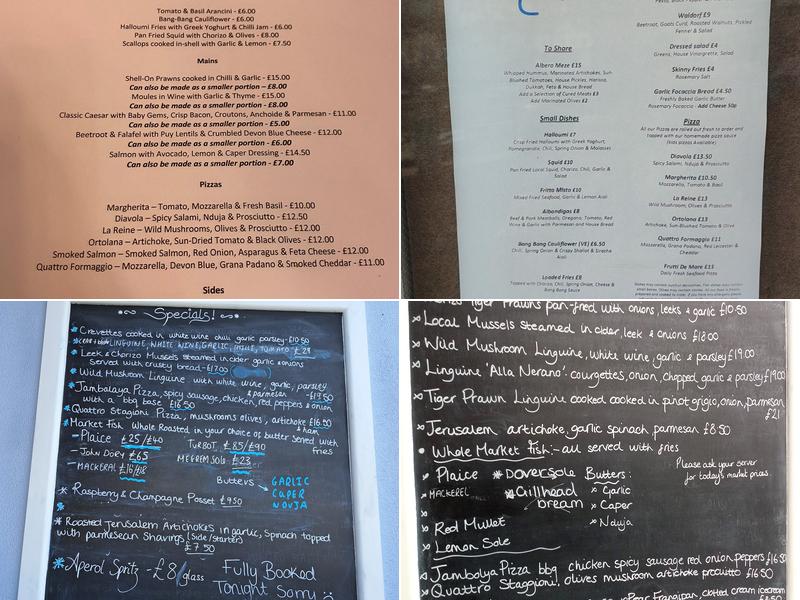 Tomato & Basil Arancini - £6.00
Bang-Bang Cauliflower - £6.00
Halloumi Fries with Greek Yoghurt & Chilli Jam - £6.00
Pan Fried Squid with Chorizo & Olives - £8.00
Scallops cooked in-shell with Garlic & Lemon - £7.50
Mains
Shell-On Prawns cooked in Chilli & Garlic - £15.00
Can also be made as a smaller portion – £8.00
Moules in Wine with Garlic & Thyme - £15.00
Can also be made as a smaller portion - £8.00
Classic Caesar with Baby Gems, Crisp Bacon, Croutons, Anchoide & Parmesan - £11.00
Can also be made as a smaller portion - £5.00
Beetroot & Falafel with Puy Lentils & Crumbled Devon Blue Cheese - £12.00
Can also be made as a smaller portion - £6.00
Salmon with Avocado, Lemon & Caper Dressing - £14.50
Can also be made as a smaller portion - £7.00
Pizzas
Margherita – Tomato, Mozzarella & Fresh Basil - £10.00
Diavola – Spicy Salami, Nduja & Prosciutto - £12.50
La Reine – Wild Mushrooms, Olives & Prosciutto - £12.00
Ortolana – Artichoke, Sun-Dried Tomato & Black Olives - £12.00
Smoked Salmon – Smoked Salmon, Red Onion, Asparagus & Feta Cheese - £12.00
Quattro Formaggio – Mozzarella, Devon Blue, Grana Padano & Smoked Cheddar - £11.00
Sides
To Share
Albero Meze £15
Whipped Hummus, Marinated Artichokes, Sun-
Blushed Tomatoes, House Pickles, Harissa,
Dukkah, Feta & House Bread
Add a Selection of Cured Meats £3
Add Marinated Olives £2
Small Dishes
Halloumi £7
Crisp Fried Halloumi with Greek Yoghurt,
Pomegranate, Chilli, Spring Onion & Molasses
Squid £10
Pan Fried Local Squid, Chorizo, Chilli, Garlic &
Salad
Fritto Misto £10
Mixed Fried Seafood, Garlic & Lemon Aioli
Albondigas £8
Beef & Pork Meatballs, Oregano, Tomato, Red
Wine & Garlic with Parmesan and House Bread
Bang Bang Cauliflower (VE) £6.50
Chilli, Spring Onion & Crispy Shallot & Siracha
Aioli
Loaded Fries £8
Topped with Chorizo, Chilli, Spring Onion, Cheese &
Bang Bang Sauce
Waldorf £9
Beetroot, Goats Curd, Roasted Walnuts, Pickled
Fennel & Salad
Dressed salad £4
Greens, House Vinaigrette, Salad
Skinny Fries £4
Rosemary Salt
Garlic Focaccia Bread £4.50
Freshly Baked Garlic Butter
Rosemary Focaccia - Add Cheese 50p
Pizza
All our Pizza are rolled out fresh to order and
topped with our homemade pizza sauce
(kids pizzas Available)
Diavola £13.50
Spicy Salami, Nduja & Prosciutto
Margherita £10.50
Mozzarella, Tomato & Basil
La Reine £13
Wild Mushroom, Olives & Prosciutto
Ortolana £13
Artichoke, Sun-Blushed Tomato & Olive
Quattro Formaggio £11
Mozzarella, Grana Padano, Red Leicester &
Cheddar
Frutti De Mare £15
Daily Fresh Seafood Pizza
Specials!
Crevettes cooked in white wine chilli garlic parsley £10.50
LINGUINE, WHITE WINE, GARLIC, CHILLI, TOMATO £29
Leek & Chorizo Mussels steamed in cider garlic & onions
Served with crusty bread - £17.00
Wild Mushroom Linguine with white wine, garlic, parsley
& parmesan - £17.50
Jambalaya Pizza, spicy sausage, chicken, red peppers & onion
with a bbq base £16.50
Quattro Stagioni Pizza, mushrooms olives, artichoke £16.50
& ham
Market Fish Whole Roasted in your choice of butter served with
fries
- Plaice £25/£40
TURBOT £85/£90
- John Dory £65
MEGRIM SOLE £23
- MACKERAL £16/£18
Butters
GARLIC
CAPER
NDUJA
Raspberry & Champagne Posset £9.50
Roasted Jerusalem Artichokes in garlic, Spinach topped
with parmesean Shavings (side/starter)
£7.50
Aperol Spritz - £8/glass
Fully Booked
Tonight Sorry
Tiger Prawns pan-fried with onions, leeks & garlic £10.50
Local Mussels Steamed in cider, leek & onions £18.00
Wild Mushroom Linguine, white wine, garlic & parsley £19.00
Linguine 'Alla Nerano'. courgettes, onion, chopped garlic & parsley £19.00
Tiger Prawn Linguine cooked cooked in pinot grigio, onion, parmesan
£21
Jerusalem artichoke, garlic spinach, parmesan £8.50
Whole Market fish:- all served with fries
Plaice
Doversole
Butters:
Please ask your server
for today's market prices
MACKEREL
Gillhead
bream
Garlic
Caper
Nduja
Red Mullet
Lemon Sole
Jambalya Pizza bbq chicken spicy sausage red onion, peppers £16.50
Quattro Staggioni, olives mushroom artichoke procuitto £16.50
Pear Frangipan, clotted cream icecream